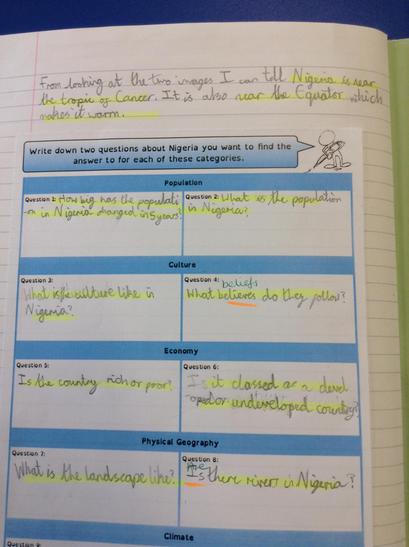 From looking at the two images I can tell Nigeria is near
the tropic of Cancer. It is also near the Equator which
makes it warm.
Write down two questions about Nigeria you want to find the
answer to for each of these categories.
Population
Question 1: How big has the populati
-on in Nigeria changed in 5 years?
Question 2: What is the population
in Nigeria?
Culture
Question 3:
What is the culture like in
Nigeria?
Question 4: beliefs
What believes do they follow?
Economy
Question 5:
Is the country rich or poor?
Question 6:
Is it classed as a devel
-oped or undeveloped country?
Physical Geography
Question 7:
What is the landscape like?
Question 8:
Are
Is there rivers in Nigeria?
Climate
Question 9: